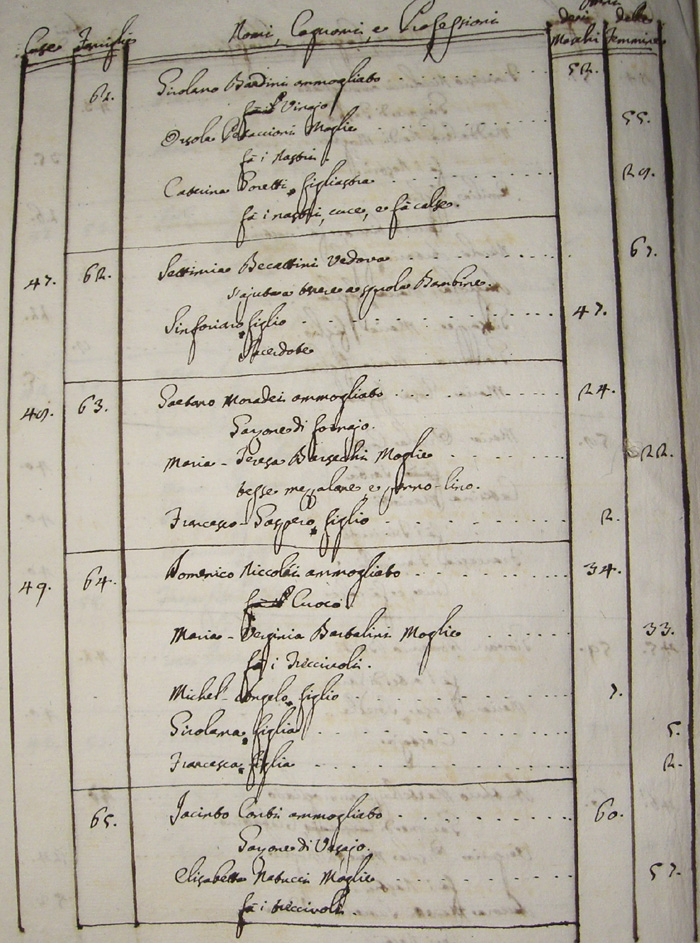 Case Famiglie Nomi, Cognomi, e Professioni Anni
dei Maschi delle Femmine
61. Girolamo Bandini ammogliato 52.
Orsola Moglie 55.
fà i Nastri.
Caterina Poretti figliastra 29.
fà i nastri, cuce, e fà calze.
47. 62. Settimia Becattini Vedova 67.
s'ajuta a tenere a scuola Bambine.
Sinforiano figlio 47.
Sacerdote
48. 63. Gaetano Moradei ammogliato 24.
Garzone di fornajo.
Maria-Teresa Moglie 22.
tesse mezzalane, e panno-lino.
Francesco-Gaspero figlio 2.
49. 64. Domenico Niccolai ammogliato 34.
Cuoco.
Maria-Verginia Barbalini Moglie 33.
fà i Treccioli.
Michel'Angelo figlio 7.
Girolama figlia 5.
Francesca figlia 2.
65. Jacinto Corbi ammogliato 60.
Garzone di
Elisabetta Moglie 57.
fà i treccioli.